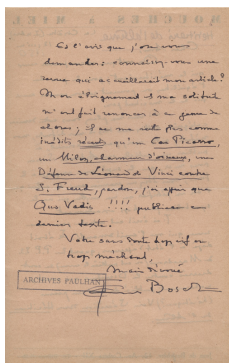 C'est ainsi que j'ose vous
demander : connaissez-vous une
revue qui accueillerait mon article ?
Mon éloignement et ma solitude
m'ont fait renoncer à ce genre de
choses ; il ne me reste plus comme
inédits récents qu'un Cas Picasso,
un Milosz, charmeur d'oiseaux, une
Défense de Léonard de Vinci contre
S. Freud, pardon, j'ai appris que
Quo Vadis !!!! publiera ce
dernier texte.
Votre sans doute
trop méchant,
mais dévoué
Bosch
ARCHIVES PAULHAN